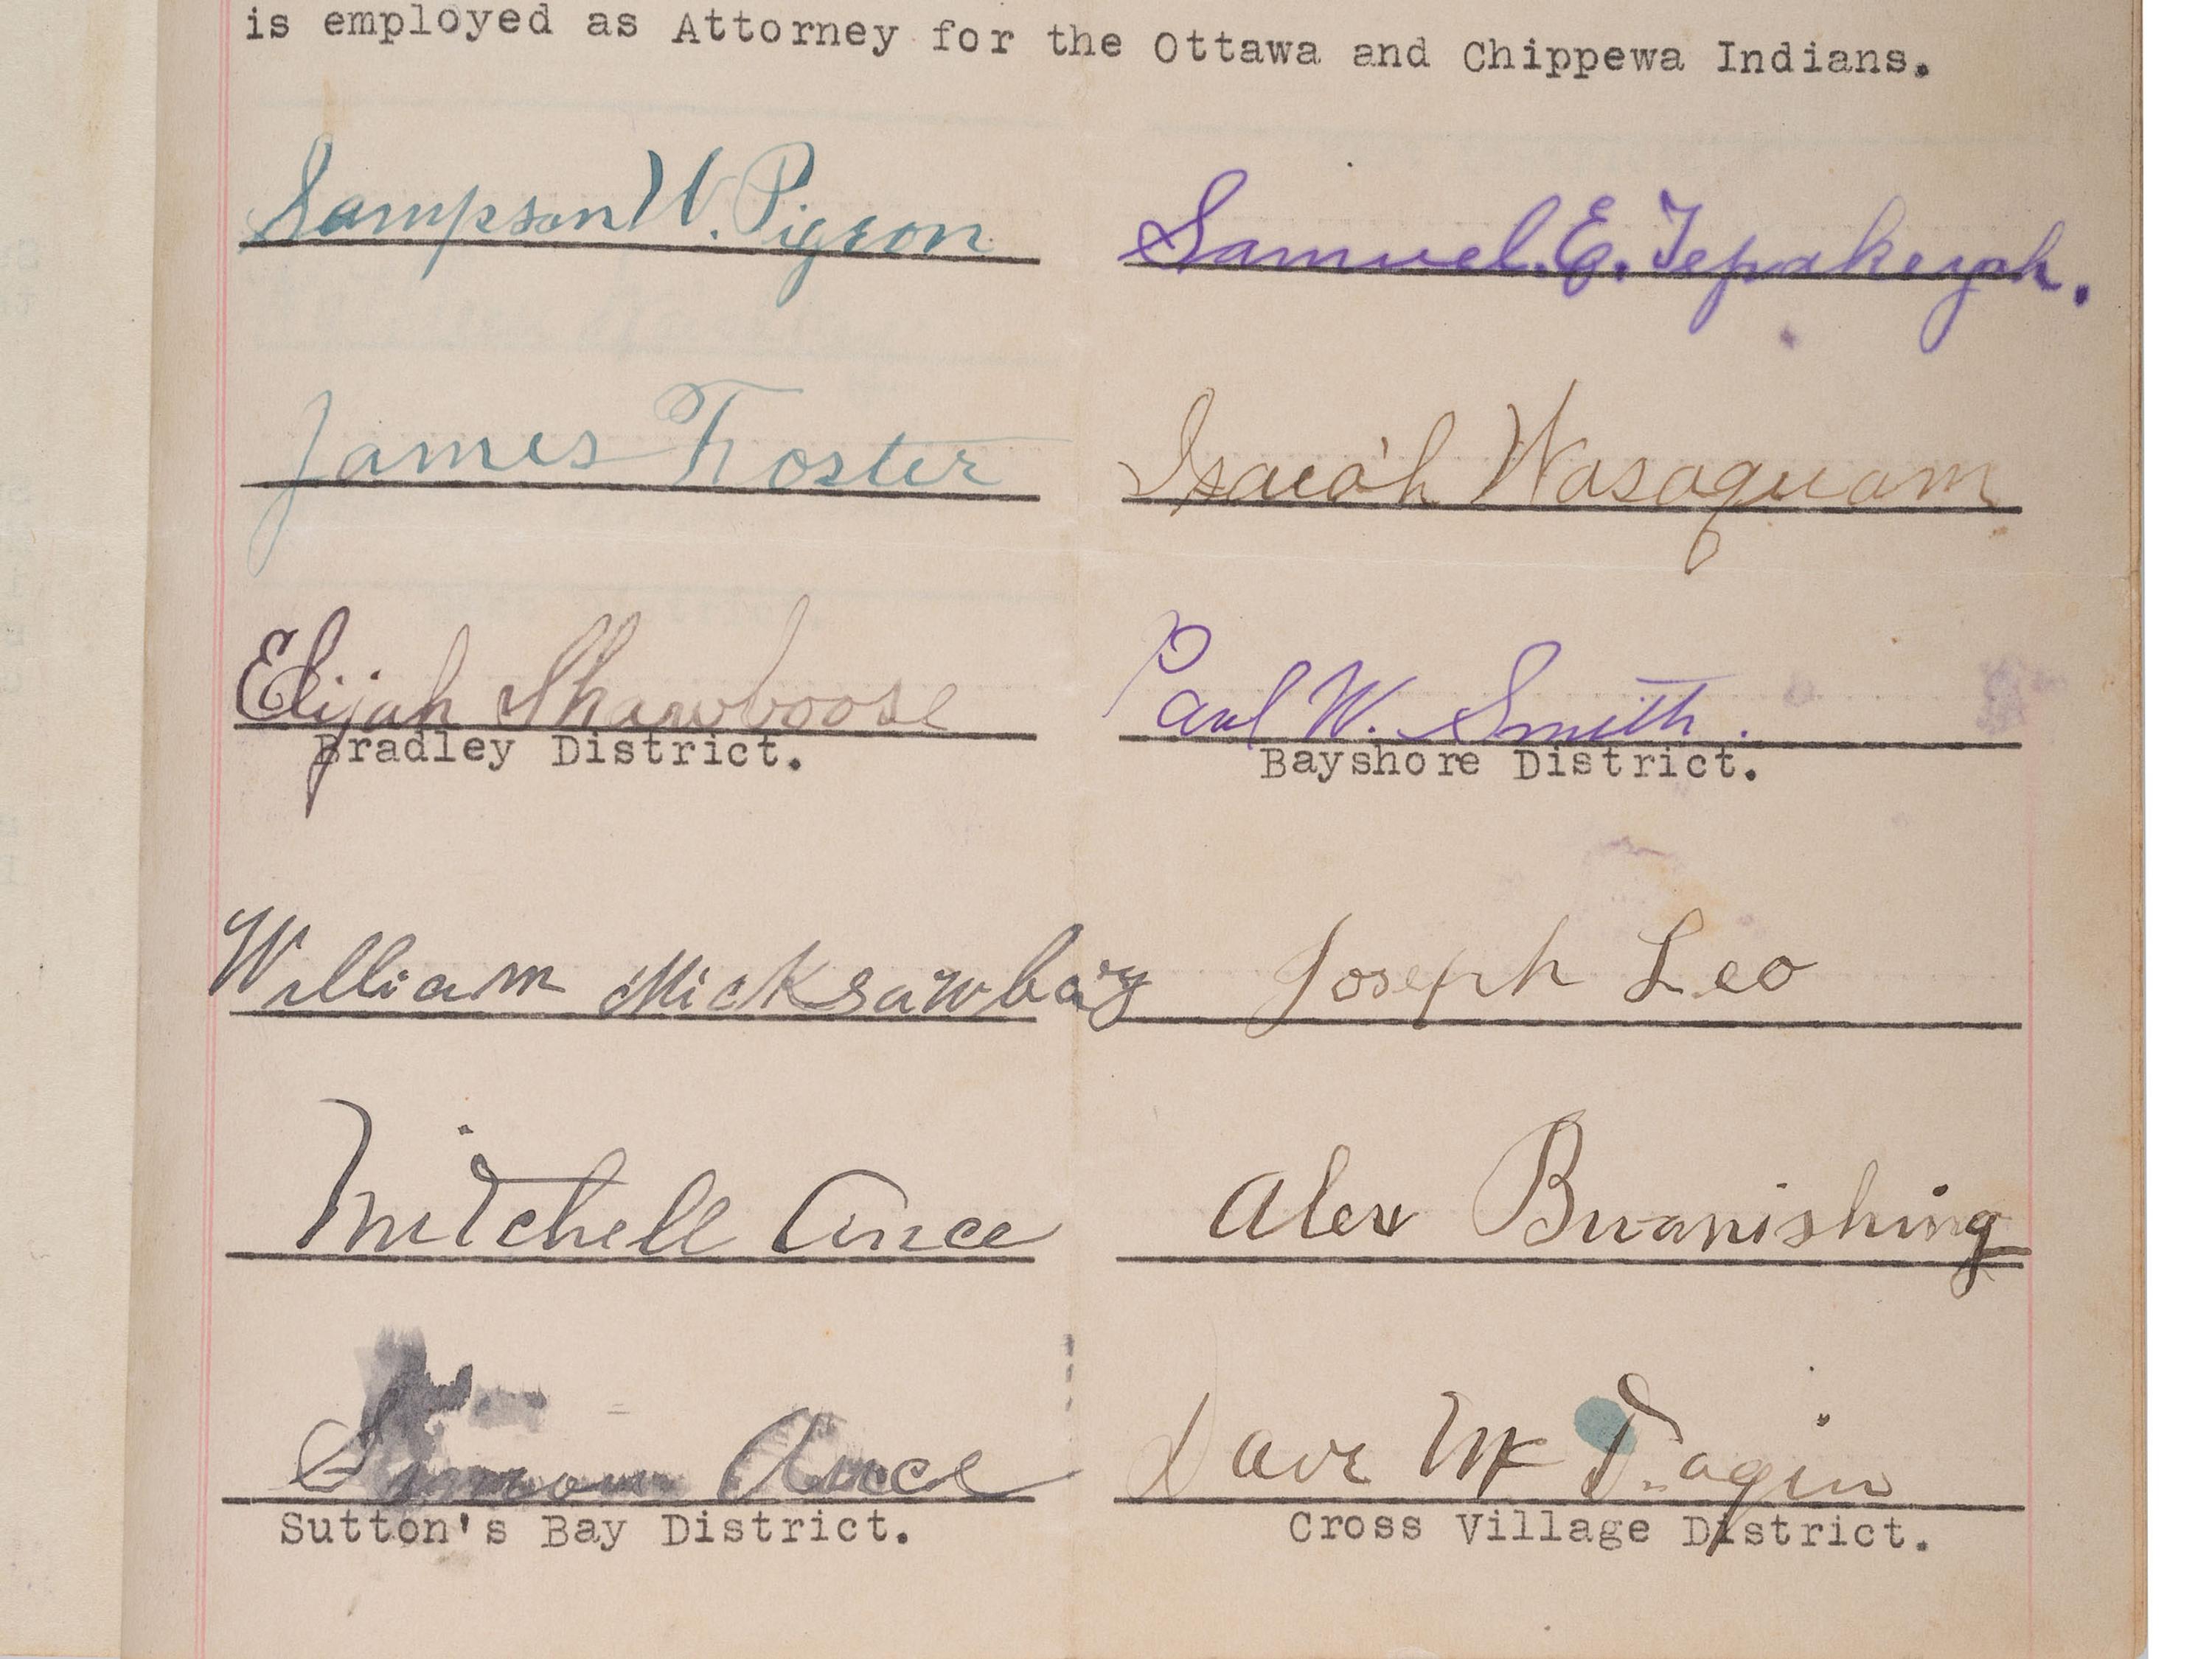 is employed as Attorney for the Ottawa and Chippewa Indians.
Sampson W. Pigeon
Samuel. E. Tepakeyah.
James Foster
Isaiah Wasaquam
Elijah Shawboose
Paul W. Smith.
Bradley District.
Bayshore District.
William Micksawbay
Joseph Leo
Mitchell Ance
Alex Buanishing
Simon Ance
Dave McDagin
Sutton's Bay District.
Cross Village District.